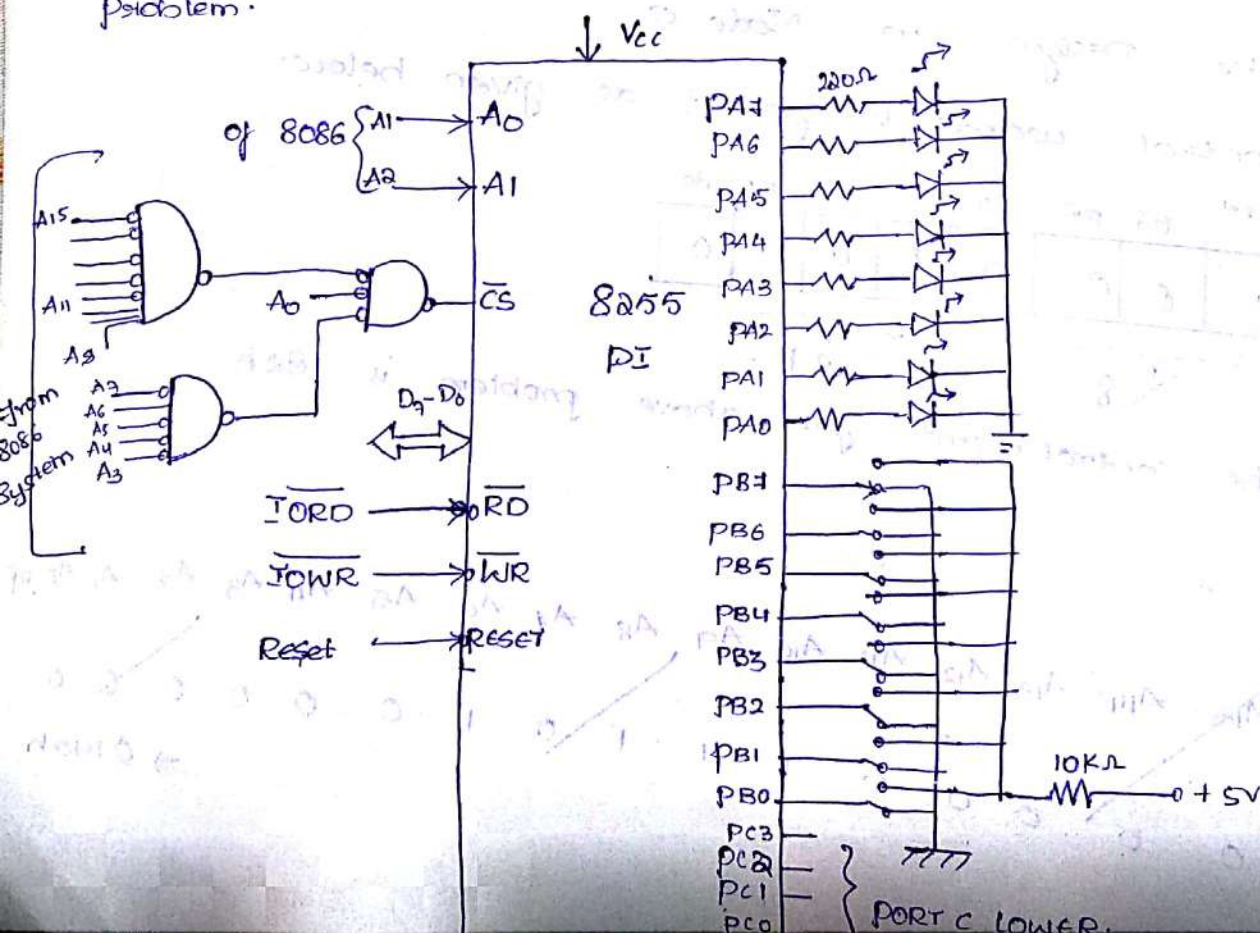 problem.
Vcc
of 8086
A1
A2
A0
A1
A15
A11
A8
A0
C̅S̅
A7
A6
A5
A4
A3
From
8086
System
D7-D0
I̅O̅R̅D̅
R̅D̅
I̅O̅W̅R̅
W̅R̅
Reset
RESET
8255
PI
PA7
PA6
PA5
PA4
PA3
PA2
PA1
PA0
220Ω
PB7
PB6
PB5
PB4
PB3
PB2
PB1
PB0
10KΩ
+5V
PC3
PC2
PC1
PC0
PORT C LOWER.